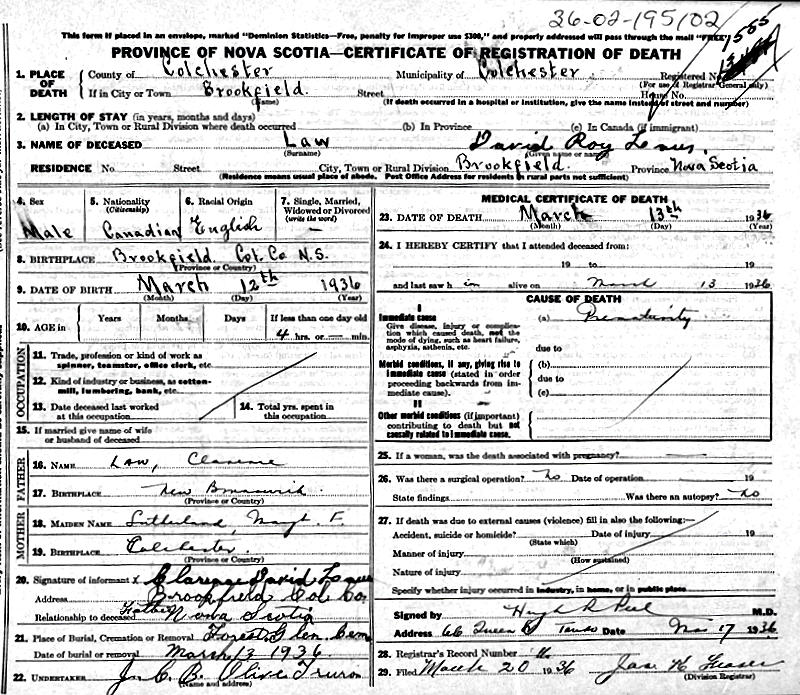 36-02-195/02
This form if placed in an envelope, marked "Dominion Statistics—Free, penalty for improper use $300," and properly addressed will pass through the mail "FREE"
PROVINCE OF NOVA SCOTIA—CERTIFICATE OF REGISTRATION OF DEATH
1. PLACE OF DEATH County of Colchester Municipality of Colchester Registered No.
(For use of Registrar General only)
If in City or Town Brookfield. Street House No.
(Name) (If death occurred in a hospital or institution, give the name instead of street and number)
2. LENGTH OF STAY (in years, months and days)
(a) In City, Town or Rural Division where death occurred (b) In Province (c) In Canada (if immigrant)
3. NAME OF DECEASED Law David Roy
(Surname) (Given name or names)
RESIDENCE No. Street City, Town or Rural Division Brookfield. Province Nova Scotia
(Residence means usual place of abode. Post Office Address for residents in rural parts not sufficient)
4. Sex Male
5. Nationality (Citizenship) Canadian
6. Racial Origin English
7. Single, Married, Widowed or Divorced (write the word) —
8. BIRTHPLACE Brookfield. Col. Co. N.S.
(Province or Country)
9. DATE OF BIRTH March 12th 1936
(Month) (Day) (Year)
10. AGE in Years Months Days If less than one day old
4 hrs. or — min.
OCCUPATION
11. Trade, profession or kind of work as spinner, teamster, office clerk, etc.
12. Kind of industry or business, as cotton-mill, lumbering, bank, etc.
13. Date deceased last worked at this occupation
14. Total yrs. spent in this occupation
15. If married give name of wife or husband of deceased
FATHER
16. NAME Law, Clarence
17. BIRTHPLACE New Brunswick.
(Province or Country)
MOTHER
18. MAIDEN NAME Sutherland, Margt. F.
19. BIRTHPLACE Colchester.
(Province or Country)
20. Signature of informant Clarence David
Address Brookfield Col. Co.
Relationship to deceased Father Nova Scotia
21. Place of Burial, Cremation or Removal Forest Glen Cem
Date of burial or removal March 13 1936.
22. UNDERTAKER J. C. B. Olive Truro
(Name and address)
MEDICAL CERTIFICATE OF DEATH
23. DATE OF DEATH March 13th 1936
(Month) (Day) (Year)
24. I HEREBY CERTIFY that I attended deceased from:
19 to 19
and last saw h im alive on March 13 1936
CAUSE OF DEATH
I
Immediate cause
Give disease, injury or complication which caused death, not the mode of dying, such as heart failure, asphyxia, asthenia, etc.
(a) Prematurity
due to
Morbid conditions, if any, giving rise to immediate cause (stated in order proceeding backwards from immediate cause).
(b)
due to
(c)
II
Other morbid conditions (if important) contributing to death but not causally related to immediate cause.
25. If a woman, was the death associated with pregnancy?
26. Was there a surgical operation? No Date of operation 19
State findings Was there an autopsy? No
27. If death was due to external causes (violence) fill in also the following:—
Accident, suicide or homicide? Date of injury 19
(State which)
Manner of injury
(How sustained)
Nature of injury
Specify whether injury occurred in industry, in home, or in public place
Signed by Hugh R Peel M.D.
Address 66 Queen St Truro Date Mar 17 1936
28. Registrar's Record Number
29. Filed March 20 1936
(Division Registrar)